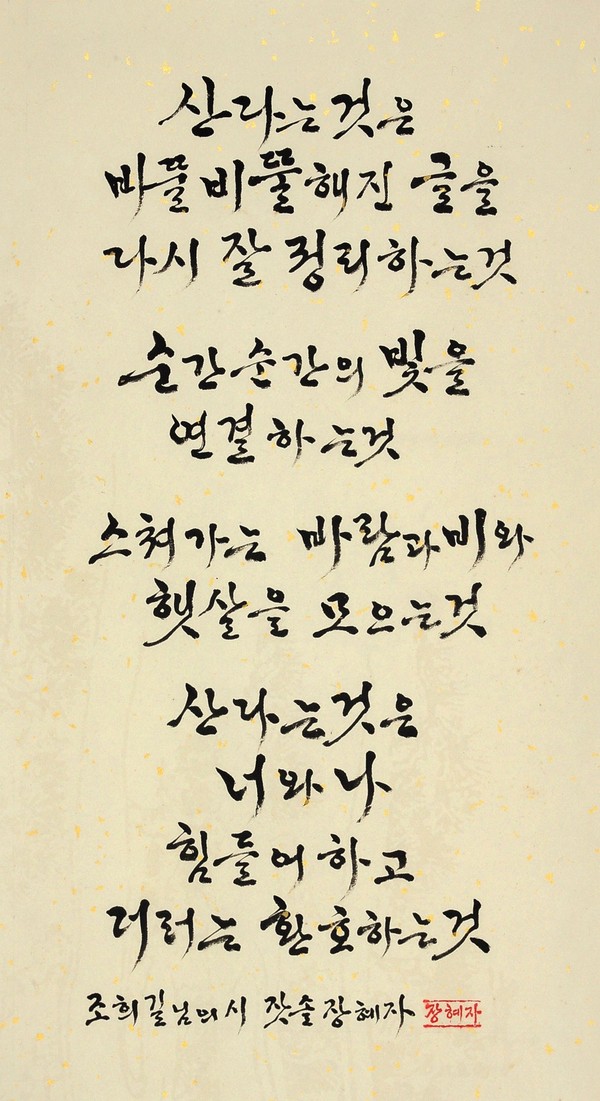 산다는것은
비뚤비뚤해진 글을
다시 잘 정리하는것
순간순간의 빛을
연결하는것
스쳐가는 바람과비와
햇살을 모으는것
산다는것은
너와 나
힘들어하고
더러는 환호하는것
조희길님의시 잣솔장혜자
장혜자